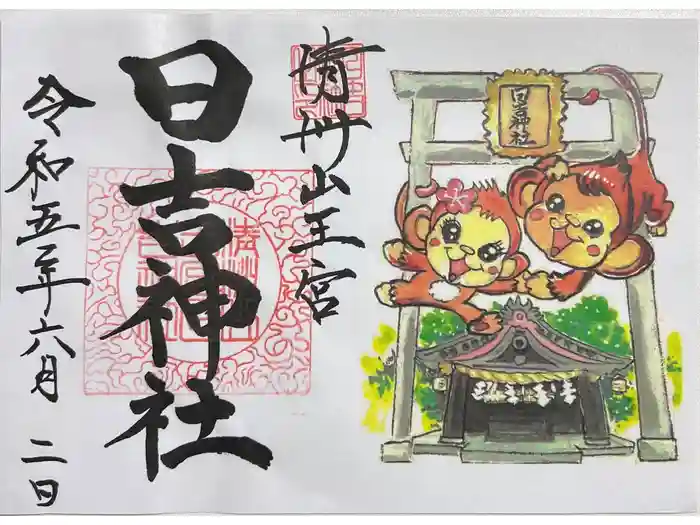 清洲山王宮
日吉神社
令和五年六月二日
日吉神社